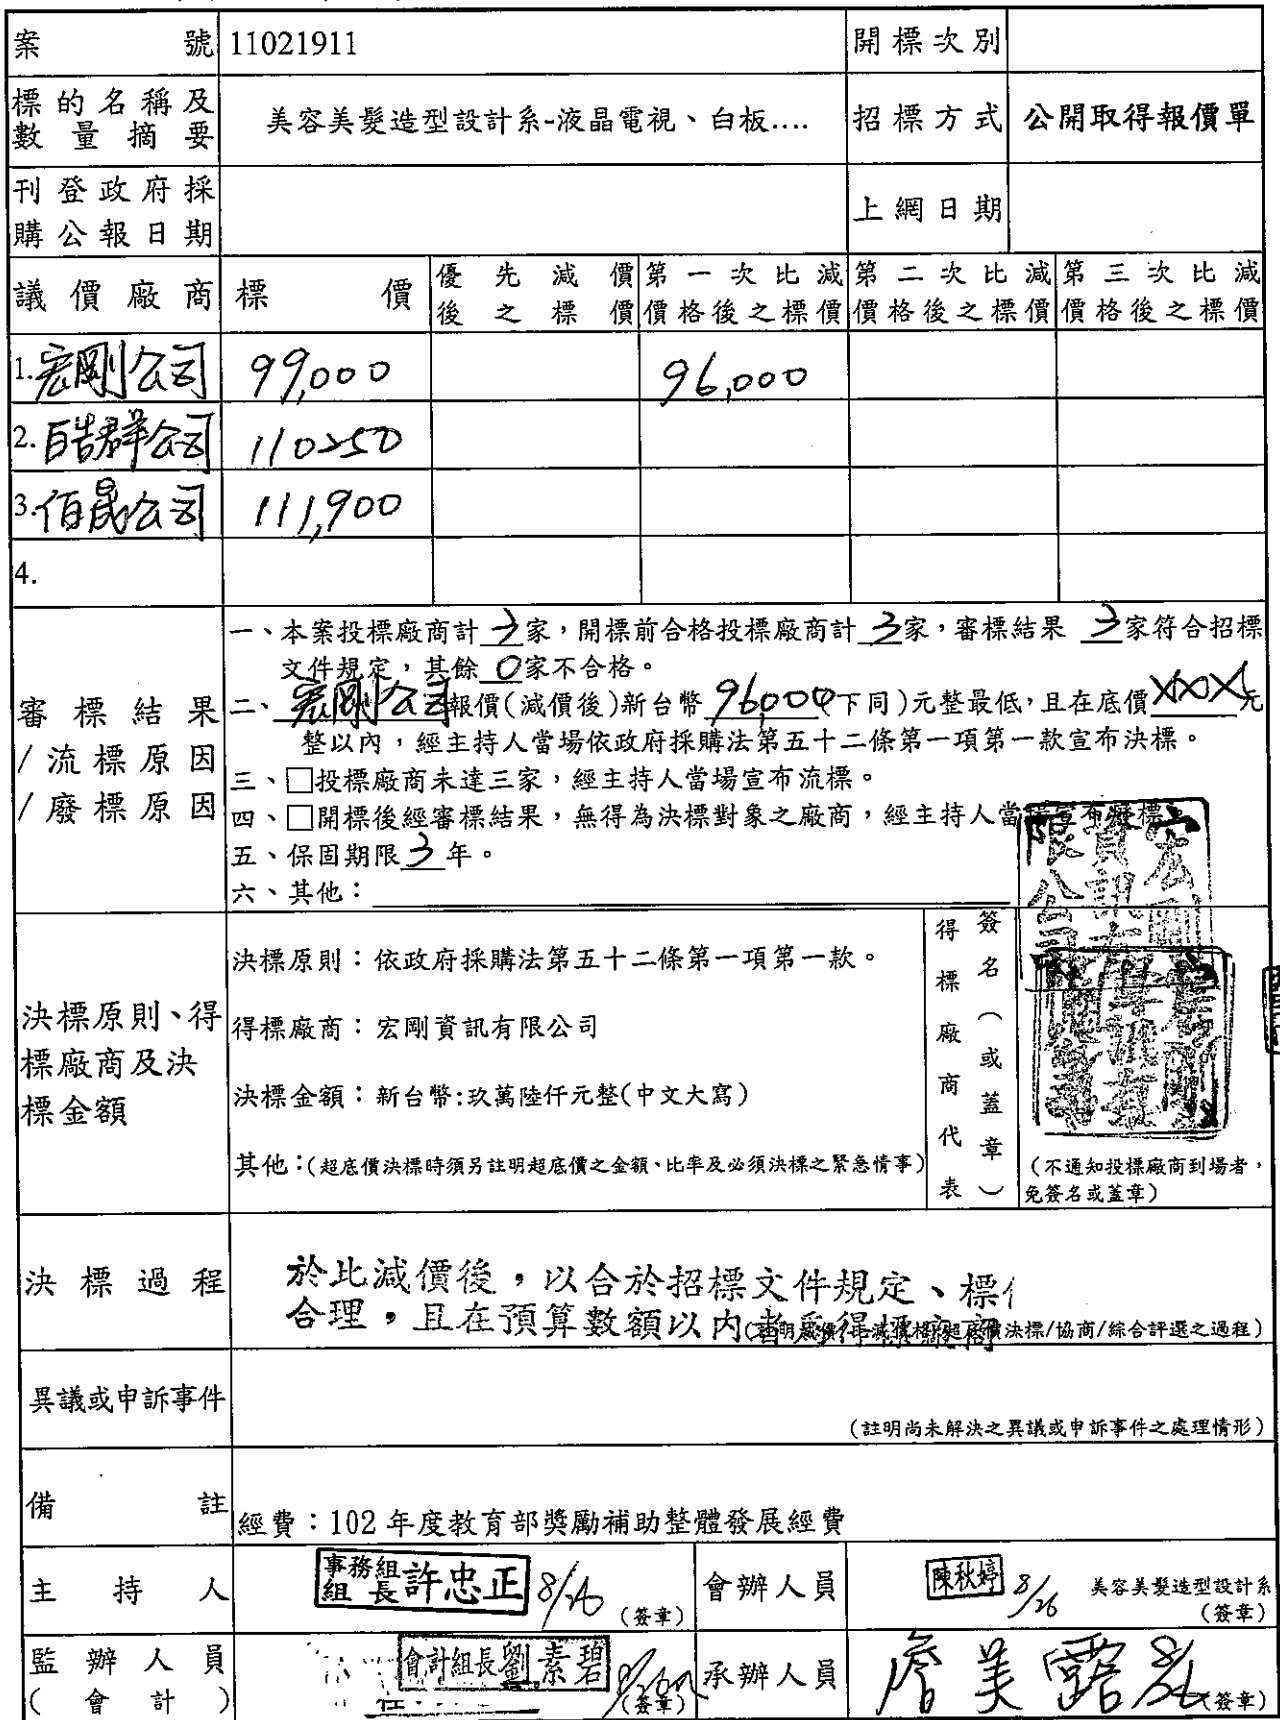 案號 11021911 開標次別
標的名稱及數量摘要 美容美髮造型設計系-液晶電視、白板.... 招標方式 公開取得報價單
刊登政府採購公報日期 上網日期
議價廠商 標價 優先減價後之標價 第一次比減價格後之標價 第二次比減價格後之標價 第三次比減價格後之標價
1.宏剛公司 99,000 96,000
2.皓群公司 110250
3.佰晟公司 111,900
4.
審標結果/流標原因/廢標原因
一、本案投標廠商計3家，開標前合格投標廠商計3家，審標結果 3家符合招標
文件規定，其餘0家不合格。
二、宏剛公司報價(減價後)新台幣96,000(下同)元整最低，且在底價XXX元
整以內，經主持人當場依政府採購法第五十二條第一項第一款宣布決標。
三、□投標廠商未達三家，經主持人當場宣布流標。
四、□開標後經審標結果，無得為決標對象之廠商，經主持人當場宣布廢標
五、保固期限3年。
六、其他：
決標原則、得標廠商及決標金額
決標原則：依政府採購法第五十二條第一項第一款。
得標廠商：宏剛資訊有限公司
決標金額：新台幣:玖萬陸仟元整(中文大寫)
其他：(超底價決標時須另註明超底價之金額、比率及必須決標之緊急情事)
得標廠商代表
簽名（或蓋章）
宏剛資訊有限公司
(不通知投標廠商到場者，
免簽名或蓋章)
決標過程
於比減價後，以合於招標文件規定、標
合理，且在預算數額以內者為得標廠商
決標/協商/綜合評選之過程)
異議或申訴事件
(註明尚未解決之異議或申訴事件之處理情形)
備註 經費：102 年度教育部獎勵補助整體發展經費
主持人 事務組組長 許忠正 8/26 (簽章) 會辦人員 陳秋婷 8/26 美容美髮造型設計系
(簽章)
監辦人員(會計) 會計組長劉素碧 (簽章) 承辦人員 詹美露 8/26 (簽章)